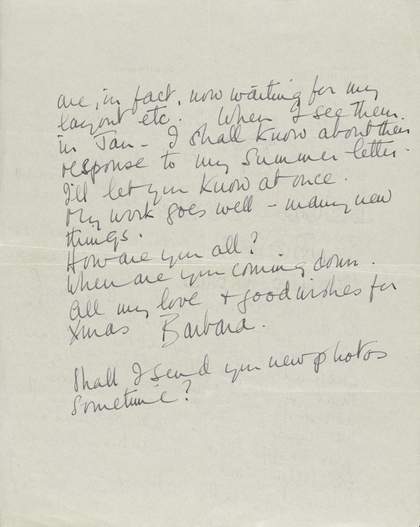 are, in fact, now waiting for my
layout etc. When I see them
in Jan - I shall know about their
response to my summer letter.
I'll let you know at once.
My work goes well - many new
things.
How are you all?
When are you coming down.
All my love + good wishes for
Xmas Barbara.
Shall I send you new photos
sometime?